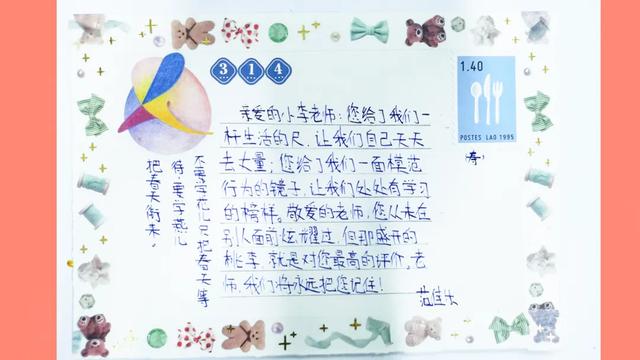 3 1 4
1.40
POSTES LAO 1995
亲爱的小李老师:您给了我们一
杆生活的尺,让我们自己天天
去丈量;您给了我们一面模范
行为的镜子,让我们处处有学习
的榜样。敬爱的老师,您从未在
别人面前炫耀过,但那盛开的
桃李,就是对您最高的评价。老
师,我们将永远把您记住!
不要学花儿只把春天等
待,要学燕儿
把春天衔来。